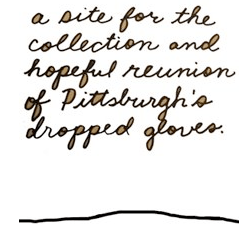 a site for the
collection and
hopeful reunion
of Pittsburgh's
dropped gloves.